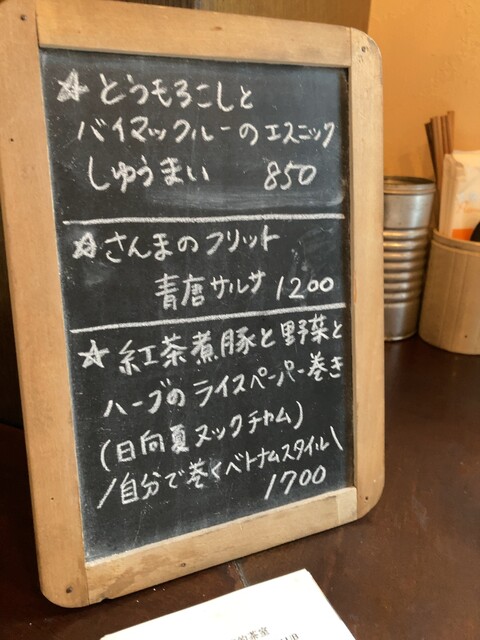 ☆とうもろこしと
バイマックルーのエスニック
しゅうまい 850
☆さんまのフリット
青唐サルサ 1200
☆紅茶煮豚と野菜と
ハーブのライスペーパー巻き
(日向夏ヌックチャム)
/自分で巻くベトナムスタイル\
1700
的茶室